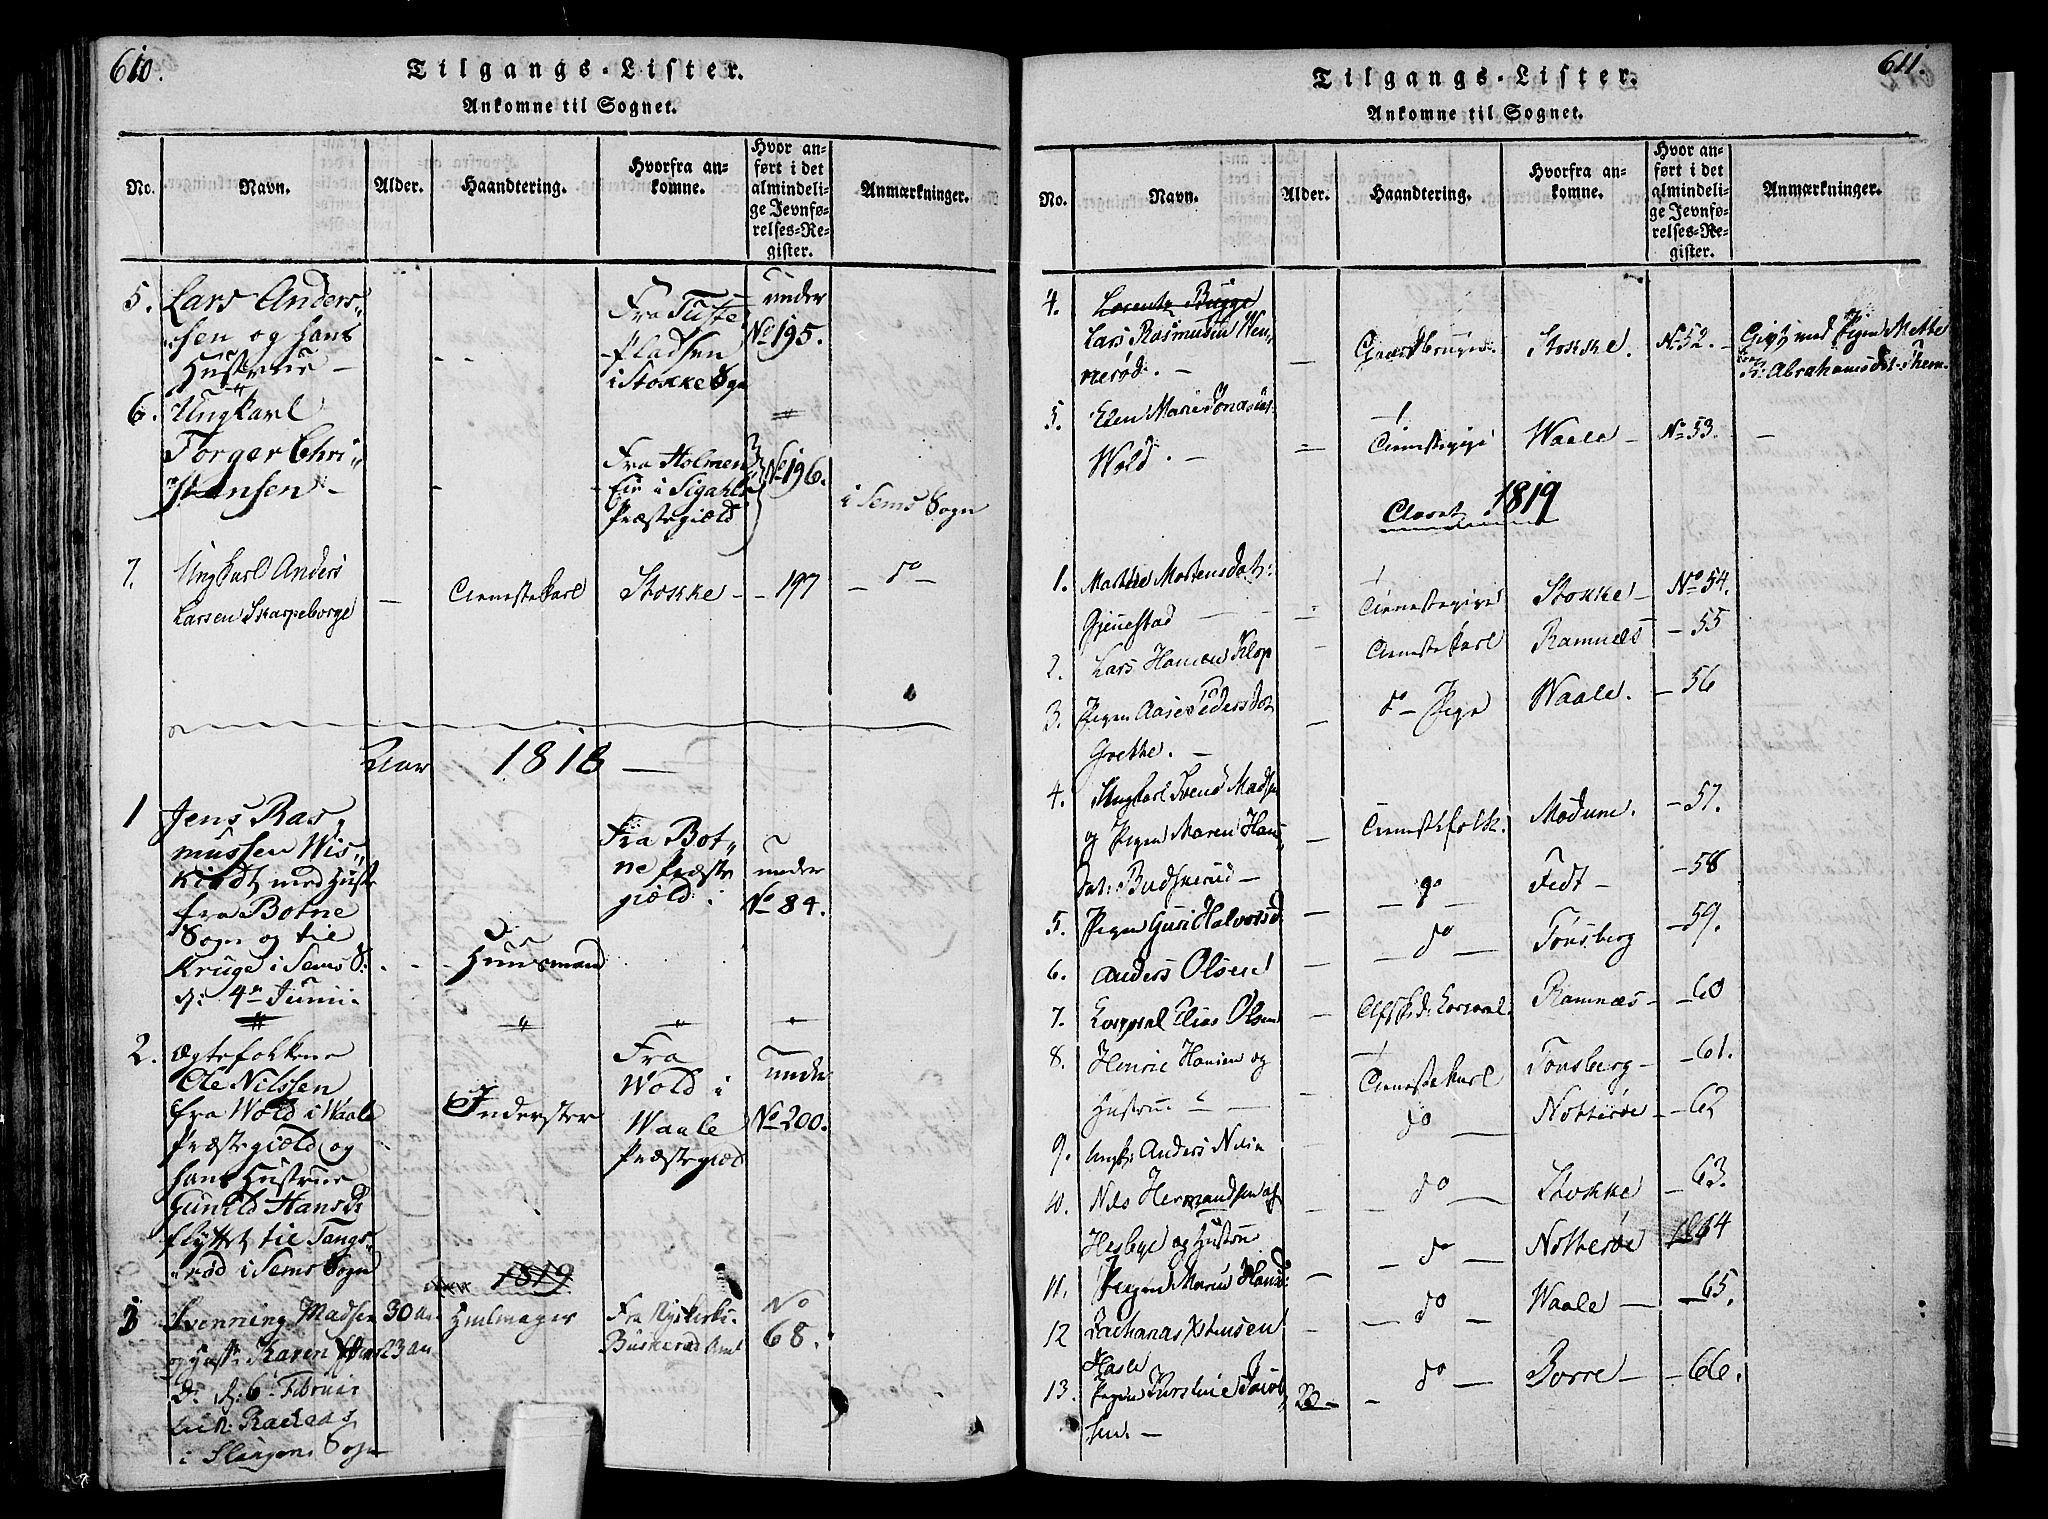 610.
Tilgangs-Lister.
Ankomne til Sognet.
No.
Navn.
Alder.
Haandtering.
Hvorfra an-
komne.
Hvor an-
ført i det
almindeli-
ge Jevnfø-
relses-Re-
gister.
Anmærkninger.
5. Lars Anders-
sen og hans
Hustrue —
Fra Tufte
Pladsen
i Stokke Sogn
under
No 195.
6. Ungkarl
Torger Chri-
stensen —
Fra Holmen
Eie i Sigdahls
Præstegiæld
No 196.
i Sems Sogn
7. Ungkarl Anders
Larsen Skarpeborge
—
Tienestekarl
Stokke —
197
— do —
Aar 1818 —
1 Jens Ras-
mussen Wis-
kindt med Hustr
fra Botne
Sogn og til
Kruge i Sems S:
d: 4de Junii.
Huusmand
Fra Bot-
ne Præste
giæld.
under
No 84.
2. Ægtefolkene
Ole Nilssen
fra Wold i Waale
Præstegiæld og
hans Hustrue
Gunild Hansd:
flyttet til Tangs-
rød i Sems Sogn
Inderster
Fra
Wold i
Waale
Præstegiæld
under
No 200.
1819
3 Svenning Madsen
og Hust: Karen
D: d: 6 Februar
i Slagens Sogn
30 aar
23 aar
Hiulmager
Fra Nykirke
Buskerud Amt
No
68.
611.
Tilgangs-Lister.
Ankomne til Sognet.
No.
Navn.
Alder.
Haandtering.
Hvorfra an-
komne.
Hvor an-
ført i det
almindeli-
ge Jevnfø-
relses-Re-
gister.
Anmærkninger.
4. Lorentz Bugge
Lars Rasmussen Wen-
nerød. —
—
Gaardbruger.
Stokke.
No 52. —
Gift med Pigen Mette
K: Abrahamsdat: Them.
5. Elen Marie Jonasdat:
Wold. —
Tienestepige
Waale —
No 53.
—
Aaret 1819
1. Marthe Mortensdat:
Gjennestad —
Tienestepige
Stokke —
No 54.
2. Lars Hansen Klop
Tienestekarl
Ramnæs
— 55
3. Pigen Aase Pedersdat
Grette. —
do — Pige
Waale.
— 56
4. Ungkarl Svend Madsen
og Pigen Maren Hans-
dat: Budserud —
Tienestefolk.
Modum.
— 57.
5. Pigen Guri Halvorsd.
— do —
Fedt —
— 58
6. Anders Olsen
— do —
Tønsberg
— 59.
7. Korporal Elias Olsen
Afsked: Korporal.
Ramnæs —
— 60
8. Henric Hansen og
Hustrue —
Tienestekarl
Tønsberg —
— 61.
9. Ungk: Anders
do —
Notterøe —
— 62
10. Nils Hermandsen af
Hesbye og Hustrue
do —
Stokke
— 63.
11. Pigen Maren Hansd:
— do —
Notterøe
64
12 Zacharias Kstensen
Hasle
— do —
Waale —
— 65.
13. Pigen Kirstine Jacob-
sen. —
20 —
— do —
Borre —
— 66.